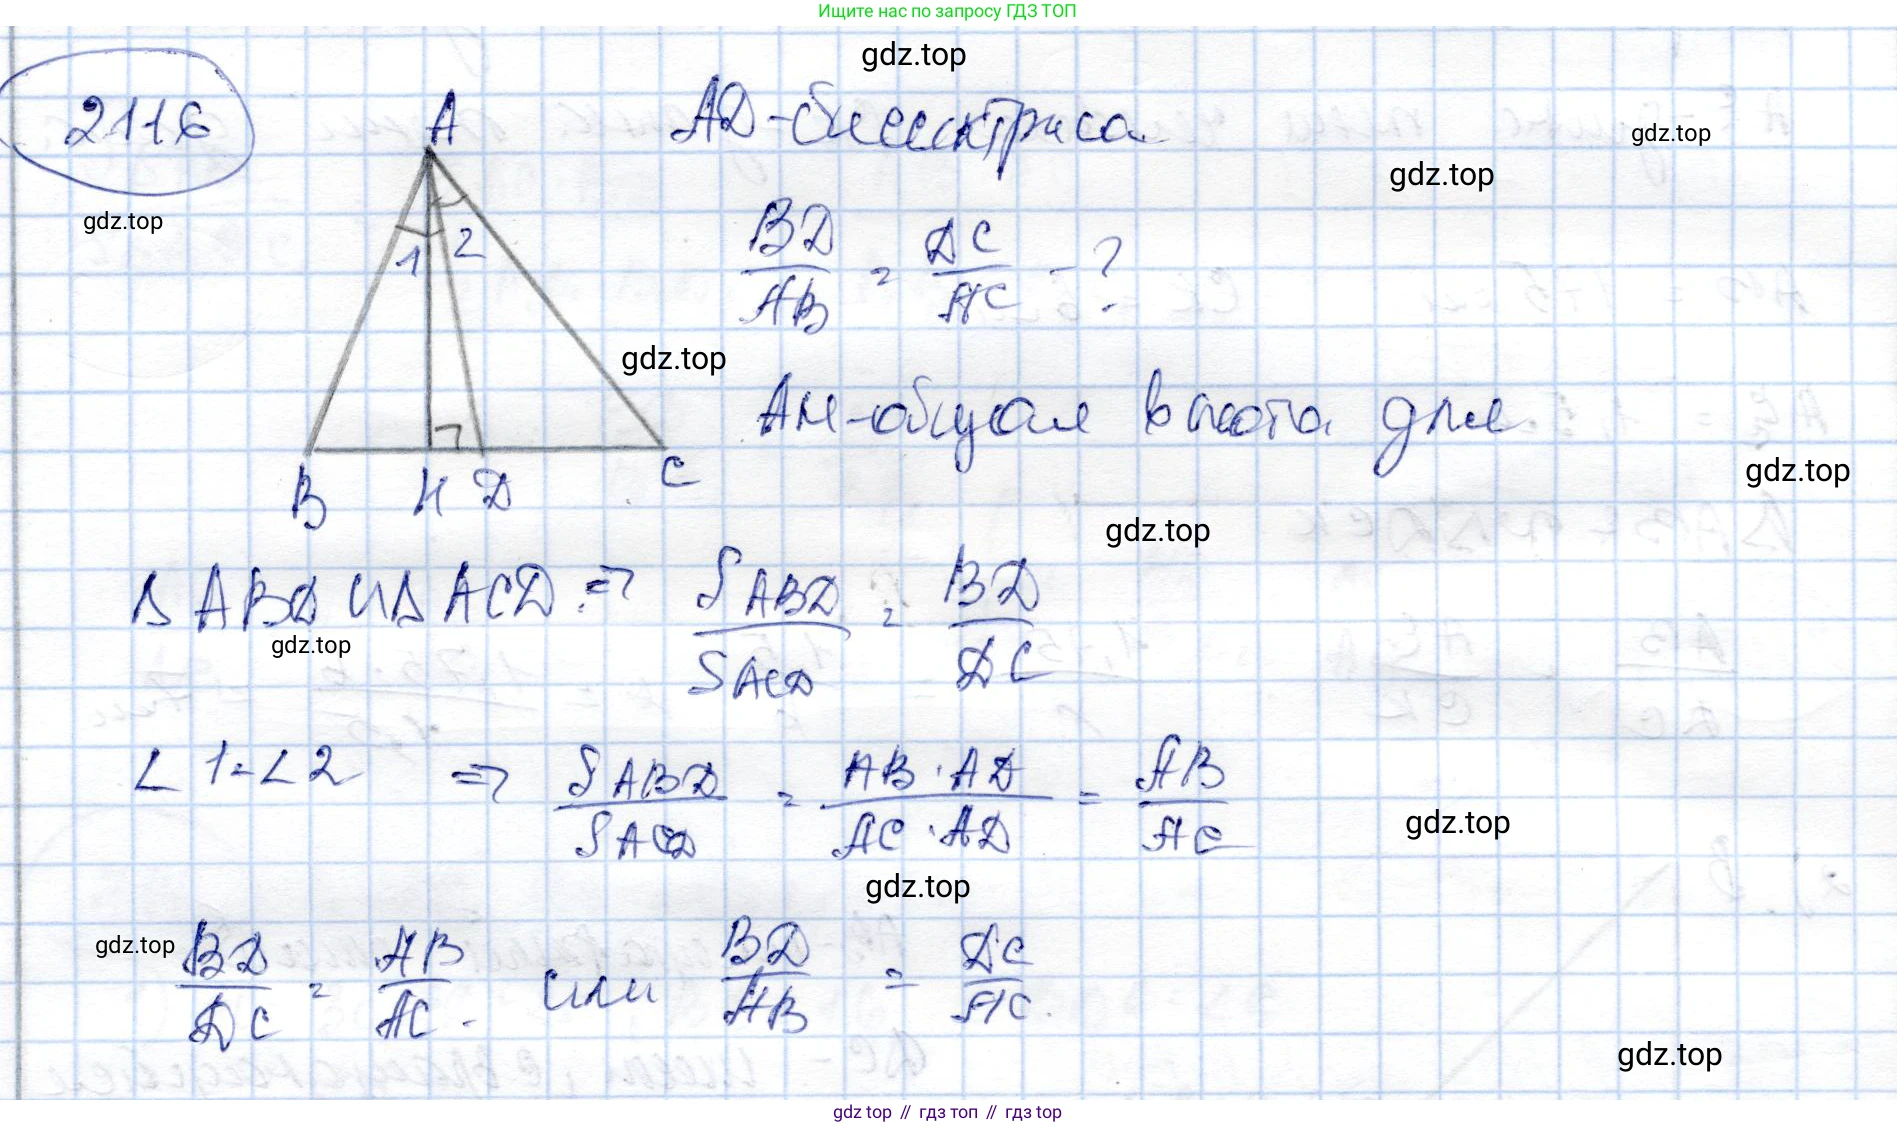 Ищите нас по запросу ГДЗ ТОП
gdz.top
2116
A
AD - биссектриса
gdz.top
gdz.top
gdz.top
1 2
BD/AB = DC/AC - ?
gdz.top
AH - общая высота для
gdz.top
B H D C
gdz.top
Δ ABD и Δ ACD. ⇒ S ABD / S ACD = BD/DC
gdz.top
∠1 = ∠2 ⇒ S ABD / S ACD = AB · AD / AC · AD = AB/AC
gdz.top
gdz.top
gdz.top
BD/DC = AB/AC. или BD/AB = DC/AC.
gdz.top
gdz top // гдз топ // гдз top